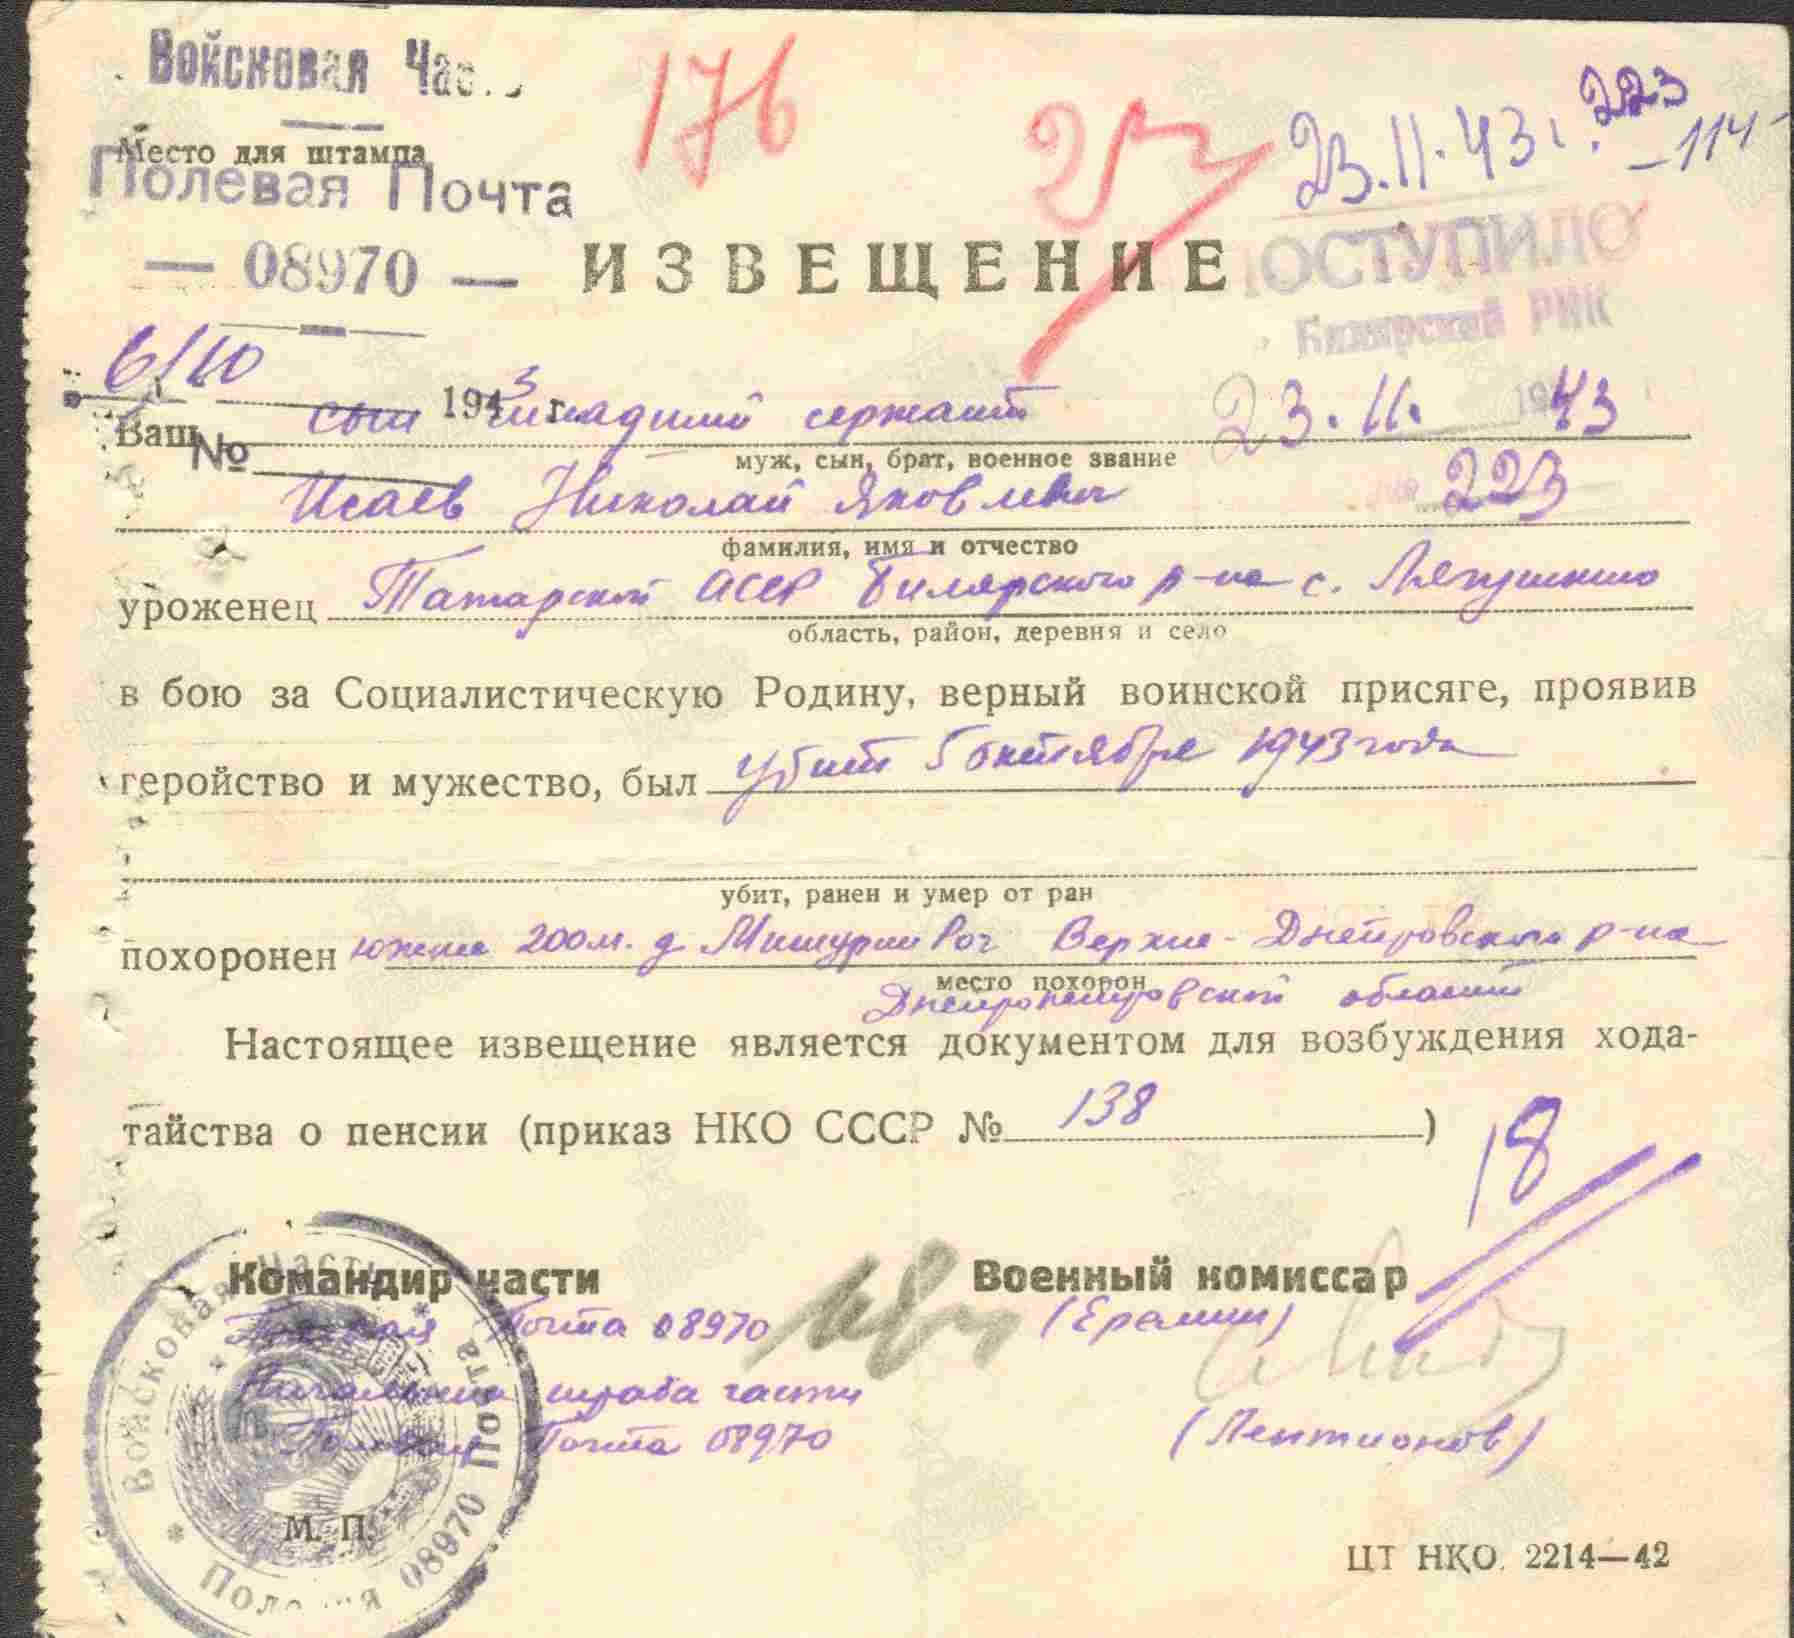 Войсковая Час
176
25
23.11.43 г. 223
-114
Место для штампа
Полевая Почта
— 08970 —
ИЗВЕЩЕНИЕ
ПОСТУПИЛО
Билярский РИК
6/10 1943 г.
23.11. 1943
№
Ваш сын младший сержант
муж, сын, брат, военное звание
223
Исаев Николай Яковлевич
фамилия, имя и отчество
уроженец Татарской АССР Билярского р-на с. Ляпушкино
область, район, деревня и село
в бою за Социалистическую Родину, верный воинской присяге, проявив
геройство и мужество, был убит 5 октября 1943 года
убит, ранен и умер от ран
похоронен южнее 200 м. д. Мишурин Рог Верхне-Днепровского р-на
место похорон
Днепропетровской области
Настоящее извещение является документом для возбуждения хода-
тайства о пенсии (приказ НКО СССР № 138)
18
Командир части
Военный комиссар
Полевая Почта 08970
(Еремин)
Начальник штаба части
Полевая Почта 08970
(Лентионов)
М. П.
Войсковая часть * Полевая Почта 08970 *
ЦТ НКО. 2214—42